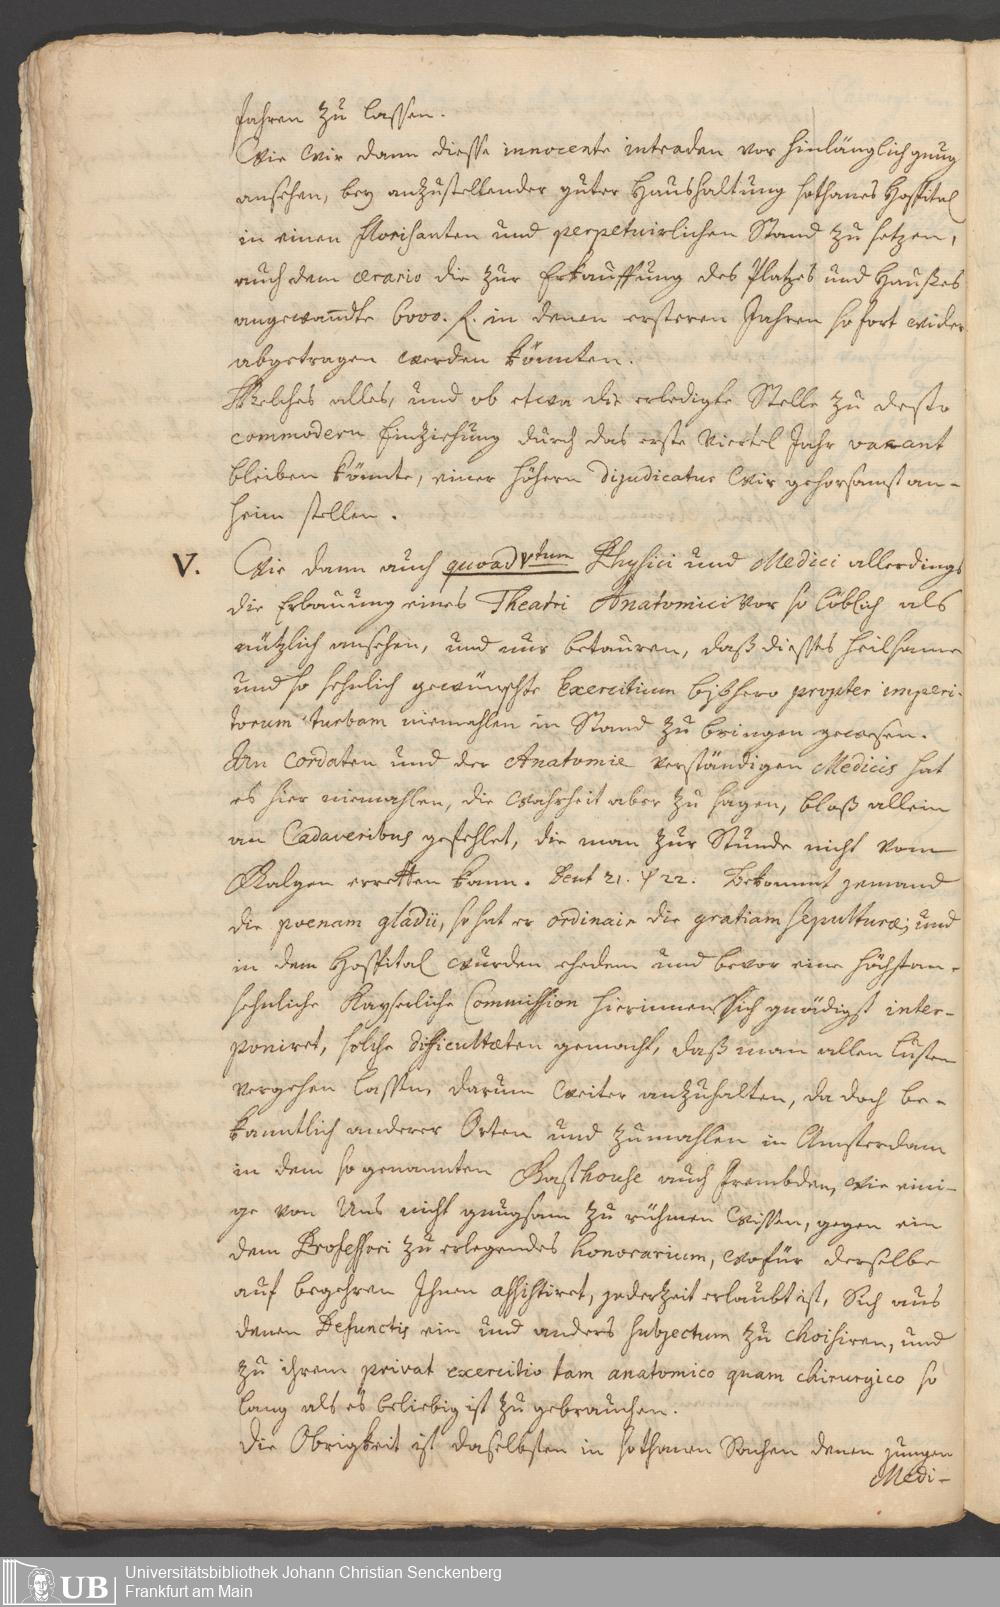 Jahren zu lassen.
Wie Wir dann diesse innocente intraden vor hinlänglich gnug
ansehen, bey anzustellender guter Haushaltung sothanes Hospital
in einen florisanten und perpetuirlichen Stand zu setzen,
auch dem ærario die zur Erkauffung des Platzes und Haußes
angewandte 6000. f. in denen ersteren Jahren sofort wider
abgetragen werden könnten.
Welches alles, und ob etwa die erledigte Stelle zu desto
commodern Einziehung durch das erste Viertel Jahr vacant
bleiben könnte, einer höhern Dijudicatur Wir gehorsamst an-
heim stellen.
V. Wie dann auch quoad Vtum Physici und Medici allerdings
die Erbauung eines Theatri Anatomici vor so löblich als
nützlich ansehen, und nur betauren, daß diesses heilsame
und so sehnlich gewünschte Exercitium bißhero propter imperi-
torum turbam niemahlen in Stand zu bringen gewesen.
An Cordaten und der Anatomie verständigen Medicis hat
es hier niemahlen, die Wahrheit aber zu sagen, bloß allein
an Cadaveribus gefehlet, die man zur Stunde nicht vom
Galgen erretten kann. Deut 21. V 22. Bekommt jemand
die poenam gladii, so hat er ordinair die gratiam sepulturæ; und
in dem Hospital wurden ehedem und bevor eine höchstan-
sehnliche Kayserliche Commission hierinnen Sich gnädigst inter-
poniret, solche difficultæten gemacht, daß man allen Lusten
vergehen lassen, darum weiter anzuhalten, da doch be-
kanntlich anderer Orten und zumahlen in Amsterdam
in dem so genannten Gasthouse auch Frembden, wie eini-
ge von Uns nicht gnugsam zu rühmen Wissen, gegen ein
dem Professori zu erlegendes honorarium, wofür derselbe
auf begehren Ihnen assistiret, jederzeit erlaubt ist, Sich aus
denen Defunctis ein und anders subjectum zu choisiren, und
zu ihrem privat exercitio tam anatomico quam chirurgico so
lang als es beliebig ist zu gebrauchen.
Die Obrigkeit ist daselbsten in sothanen Sachen denen jungen
Medi-
UB Universitätsbibliothek Johann Christian Senckenberg
Frankfurt am Main